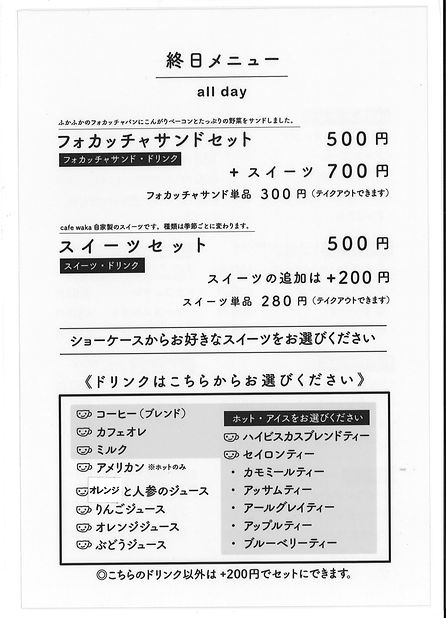 終日メニュー
all day
ふかふかのフォカッチャパンにこんがりベーコンとたっぷりの野菜をサンドしました。
フォカッチャサンドセット 500 円
フォカッチャサンド・ドリンク
+ スイーツ 700 円
フォカッチャサンド単品 300 円 (テイクアウトできます)
cafe waka 自家製のスイーツです。種類は季節ごとに変わります。
スイーツセット 500 円
スイーツ・ドリンク
スイーツの追加は +200 円
スイーツ単品 280 円 (テイクアウトできます)
ショーケースからお好きなスイーツをお選びください
《ドリンクはこちらからお選びください》
コーヒー(ブレンド)
カフェオレ
ミルク
アメリカン ※ホットのみ
オレンジと人参のジュース
りんごジュース
オレンジジュース
ぶどうジュース
ホット・アイスをお選びください
ハイビスカスブレンドティー
セイロンティー
・ カモミールティー
・ アッサムティー
・ アールグレイティー
・ アップルティー
・ ブルーベリーティー
◎こちらのドリンク以外は +200円でセットにできます。